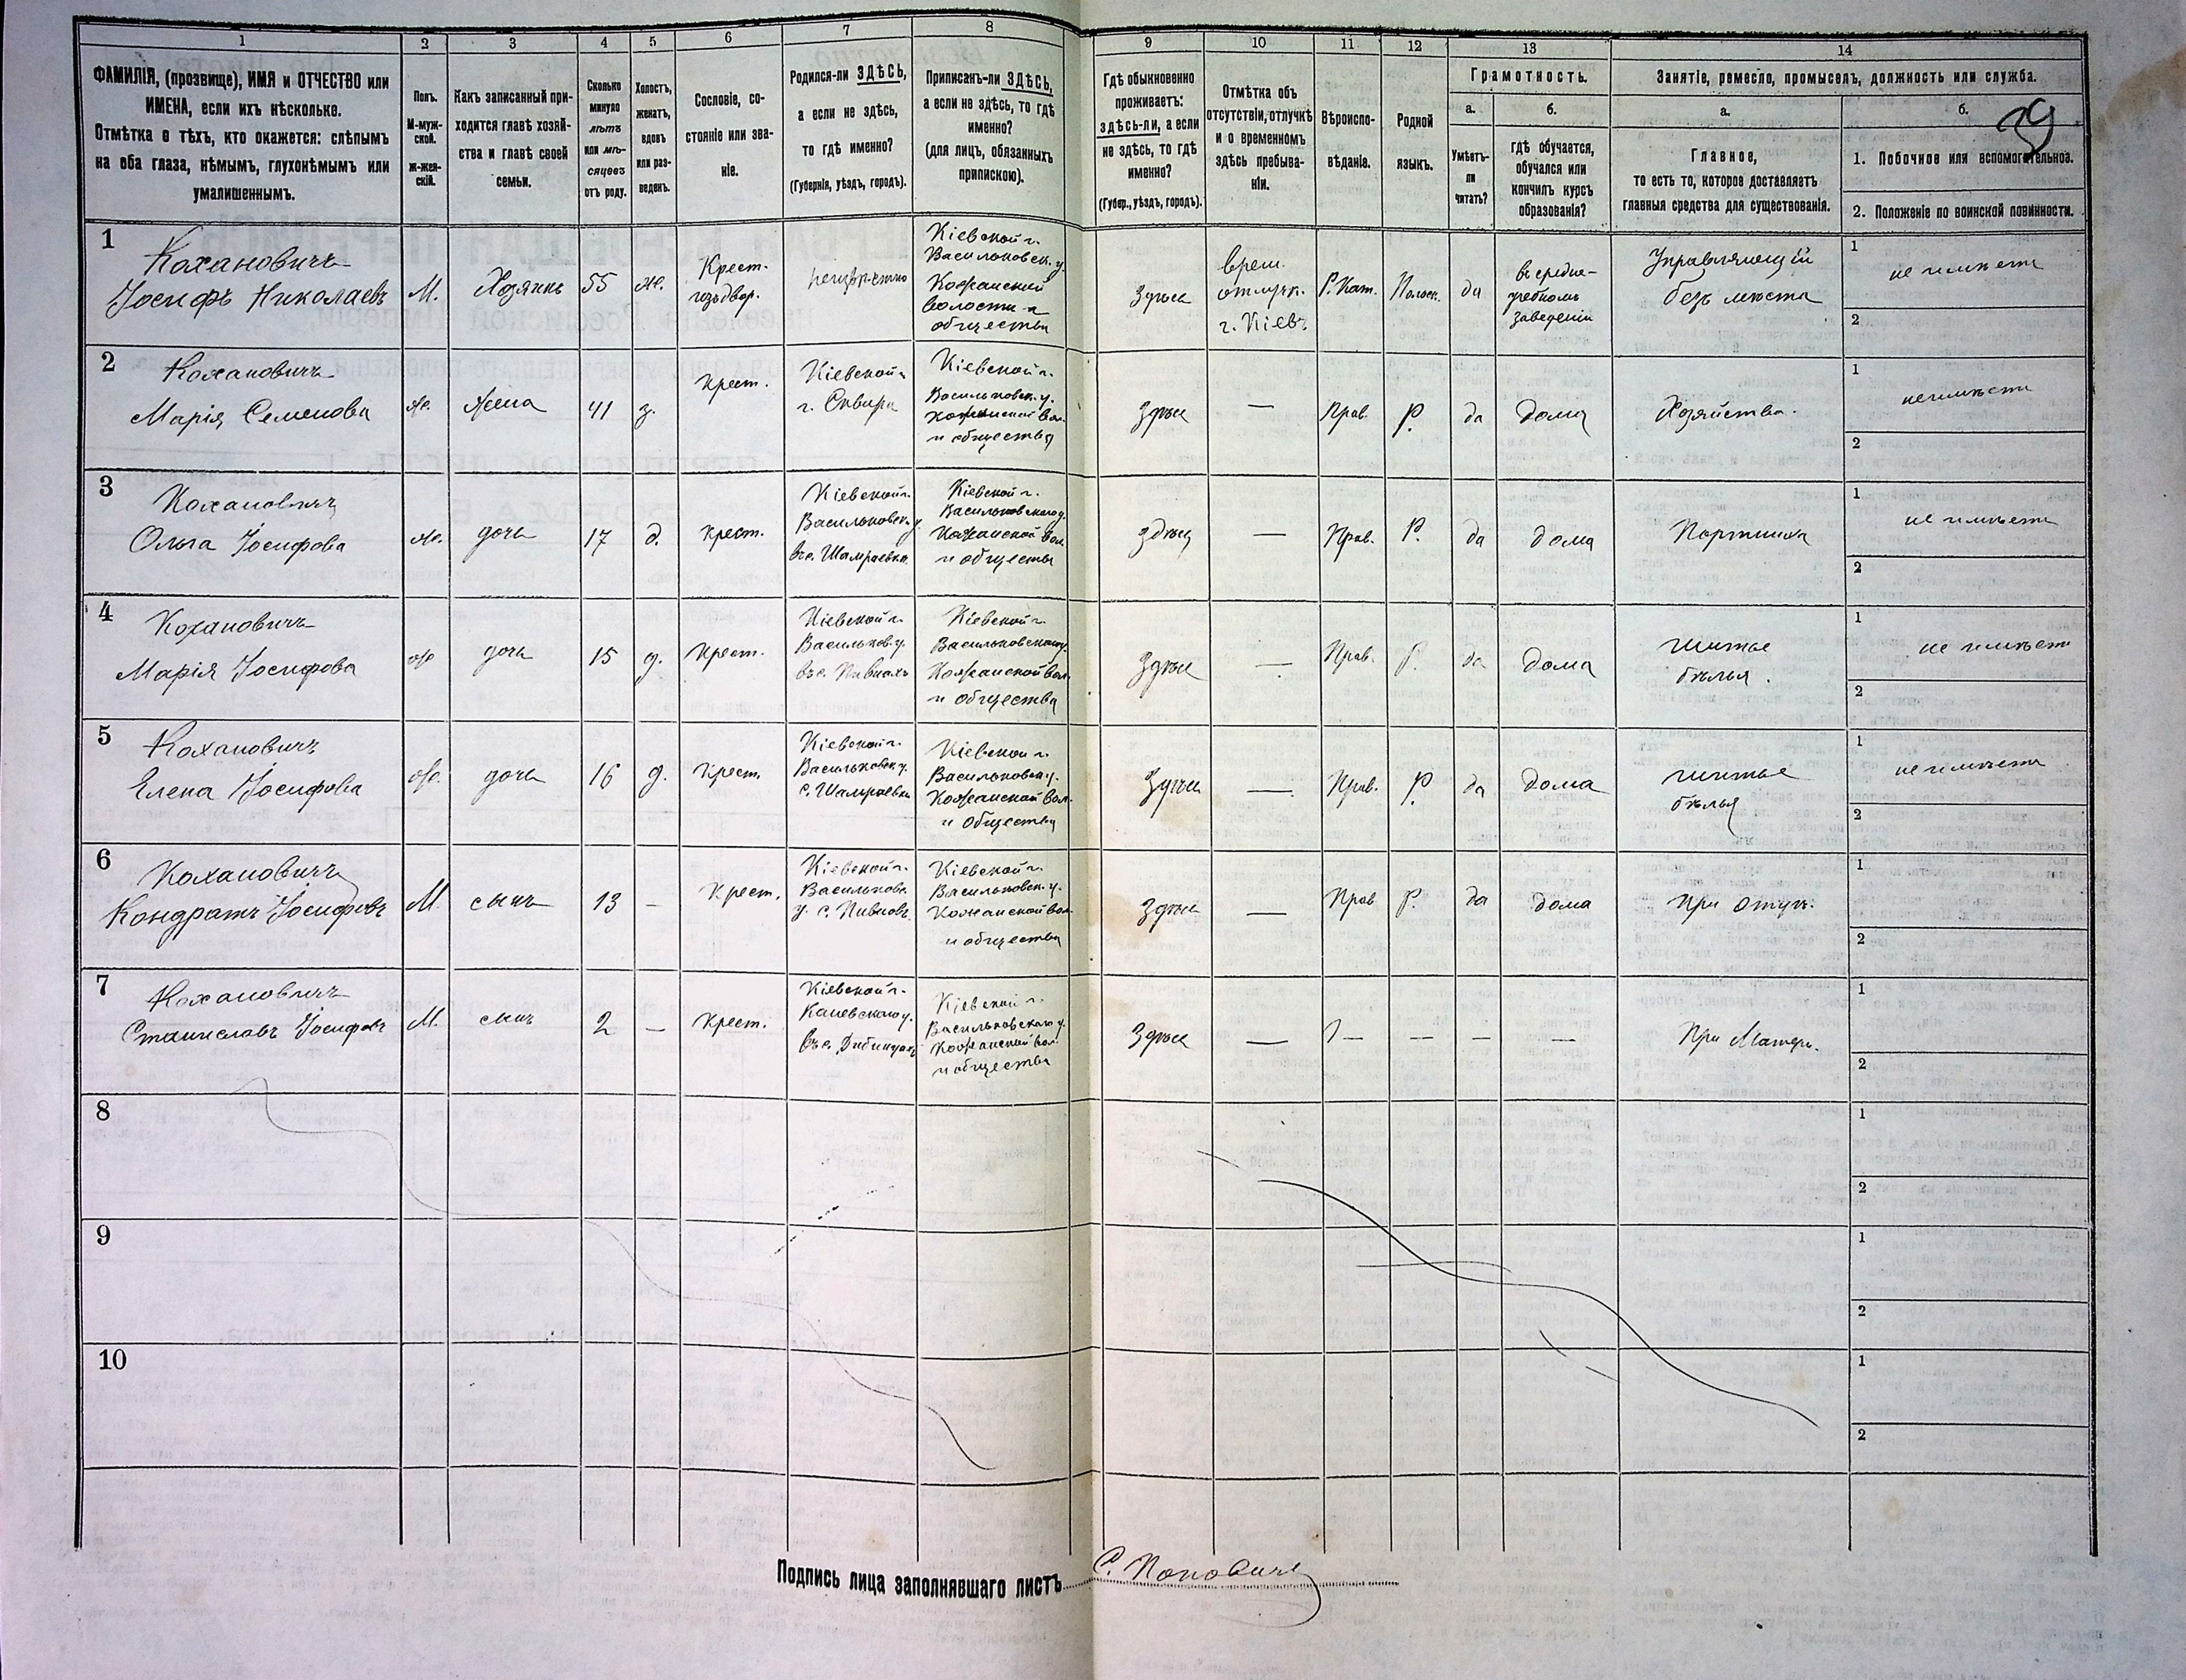 1 2 3 4 5 6 7 8 9 10 11 12 13 14
ФАМИЛІЯ, (прозвище), ИМЯ и ОТЧЕСТВО или
ИМЕНА, если ихъ нѣсколько.
Отмѣтка о тѣхъ, кто окажется: слѣпымъ
на оба глаза, нѣмымъ, глухонѣмымъ или
умалишеннымъ.
Полъ.
М-муж-
ской.
ж-жен-
скій.
Какъ записанный при-
ходится главѣ хозяй-
ства и главѣ своей
семьи.
Сколько
минуло
лѣтъ
или мѣ-
сяцевъ
отъ роду.
Холостъ,
женатъ,
вдовъ
или раз-
веденъ.
Сословіе, со-
стояніе или зва-
ніе.
Родился-ли ЗДѢСЬ,
а если не здѣсь,
то гдѣ именно?
(Губернія, уѣздъ, городъ).
Приписанъ-ли ЗДѢСЬ,
а если не здѣсь, то гдѣ
именно?
(для лицъ, обязанныхъ
припискою).
Гдѣ обыкновенно
проживаетъ:
здѣсь-ли, а если
не здѣсь, то гдѣ
именно?
(Губер., уѣздъ, городъ).
Отмѣтка объ
отсутствіи, отлучкѣ
и о временномъ
здѣсь пребыва-
ніи.
Вѣроиспо-
вѣданіе.
Родной
языкъ.
Грамотность.
а.
Умѣетъ-
ли
читать?
б.
гдѣ обучается,
обучался или
кончилъ курсъ
образованія?
Занятіе, ремесло, промыселъ, должность или служба.
а.
Главное,
то есть то, которое доставляетъ
главныя средства для существованія.
б.
39
1. Побочное или вспомогательное.
2. Положеніе по воинской повинности.
1
Кохановичъ
Іосифъ Николаевъ
М.
Хозяинъ
55
ж.
Крест.
Кіевской г.
Васильковск. у.
Кожанской
волости и
общества
Здѣсь
врем.
отлуч.
г. Кіевъ
Р. Кат.
Польск.
да
въ средне-
учебномъ
заведеніи
Управляющій
безъ мѣста
1
не имѣетъ
2
2
Кохановичъ
Марія Семенова
ж.
Жена
41
з.
Крест.
Кіевской г.
г. Сквира
Кіевской г.
Васильковск. у.
Кожанской вол.
и общества
Здѣсь
—
Прав.
Р.
да
дома
Хозяйство.
1
не имѣетъ
2
3
Кохановичъ
Ольга Іосифова
ж.
дочь
17
д.
Крест.
Кіевской г.
Васильковск. у.
въ с. Шамраевка
Кіевской г.
Васильковского у.
Кожанской вол.
и общества
здѣсь
—
Прав.
Р.
да
дома
Портниха
1
не имѣетъ
2
4
Кохановичъ
Марія Іосифова
ж
дочь
15
д.
Крест.
Кіевской г.
Васильков. у.
въ с. Пивнахъ
Кіевской г.
Васильковского у.
Кожанской вол.
и общества
Здѣсь
—
Прав.
Р.
да
дома
Шитье
бѣлья.
1
не имѣетъ
2
5
Кохановичъ
Елена Іосифова
ж.
дочь
16
д.
Крест.
Кіевской г.
Васильковск. у.
с. Шамраевка
Кіевской г.
Васильковск. у.
Кожанской вол.
и общества
Здѣсь
—
Прав.
Р.
да
дома
Шитье
бѣлья
1
не имѣетъ
2
6
Кохановичъ
Кондратъ Іосифовъ
М.
сынъ
13
—
Крест.
Кіевской г.
Васильков.
у. с. Пивновъ
Кіевской г.
Васильковск. у.
Кожанской вол.
и общества
Здѣсь
—
Прав
Р.
да
дома
При Отцѣ.
1
2
7
Кохановичъ
Станиславъ Іосифовъ
М.
сынъ
2
—
Крест.
Кіевской г.
Каневского у.
въ с. Дибинцахъ
Кіевской г.
Васильковского у.
Кожанской вол.
и общества
Здѣсь
—
—
—
—
При Матери.
1
2
8
1
2
9
1
2
10
1
2
Подпись лица заполнявшаго листъ С. Поповичъ